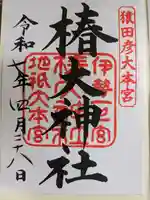 猿田彦大本宮
伊勢一之宮
椿大神社
地祇大本宮
令和七年四月二十八日